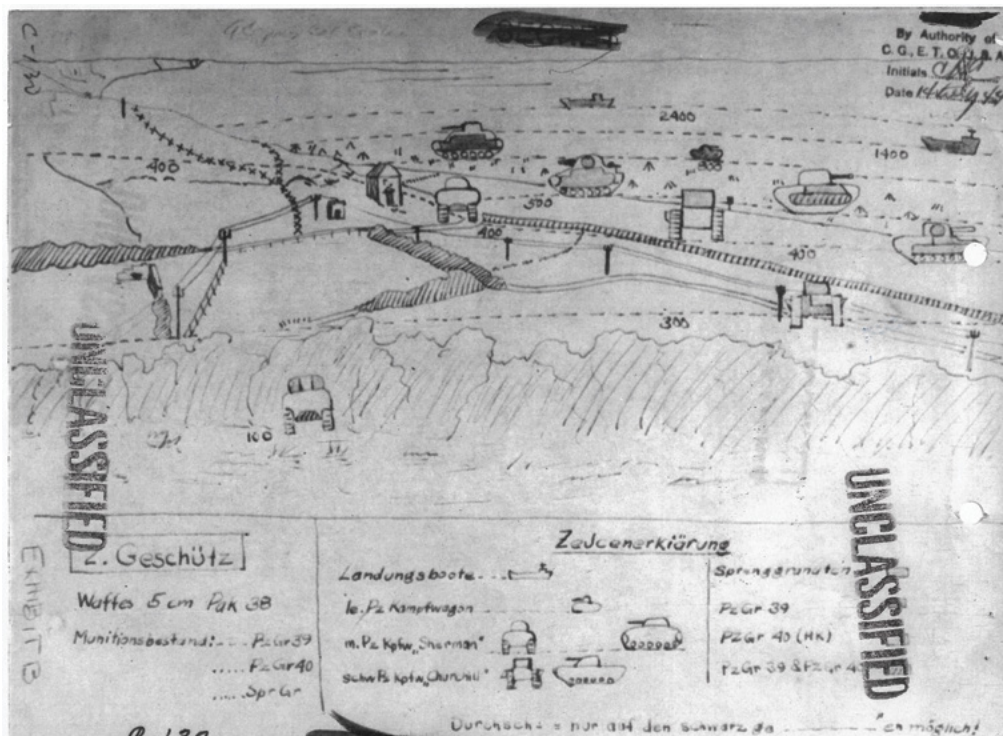 C-132
By Authority of
C. G., E. T. O. U. S. A.
Initials
Date
2400
1400
400
800
500
400
400
300
100
UNCLASSIFIED
UNCLASSIFIED
EXHIBIT B
2. Geschütz
Waffe: 5 cm Pak 38
Munitionsbestand: --- PzGr 39
..... PzGr 40
..... Spr Gr
Zeicenerklärung
Landungsboote
le. Pz Kampfwagen
m. Pz Kpfw. "Sherman"
schw Pz Kpfw.
Sprenggranaten
PzGr 39
PzGr 40 (HK)
PzGr 39 & PzGr 4
nur auf den schwarz
möglich!